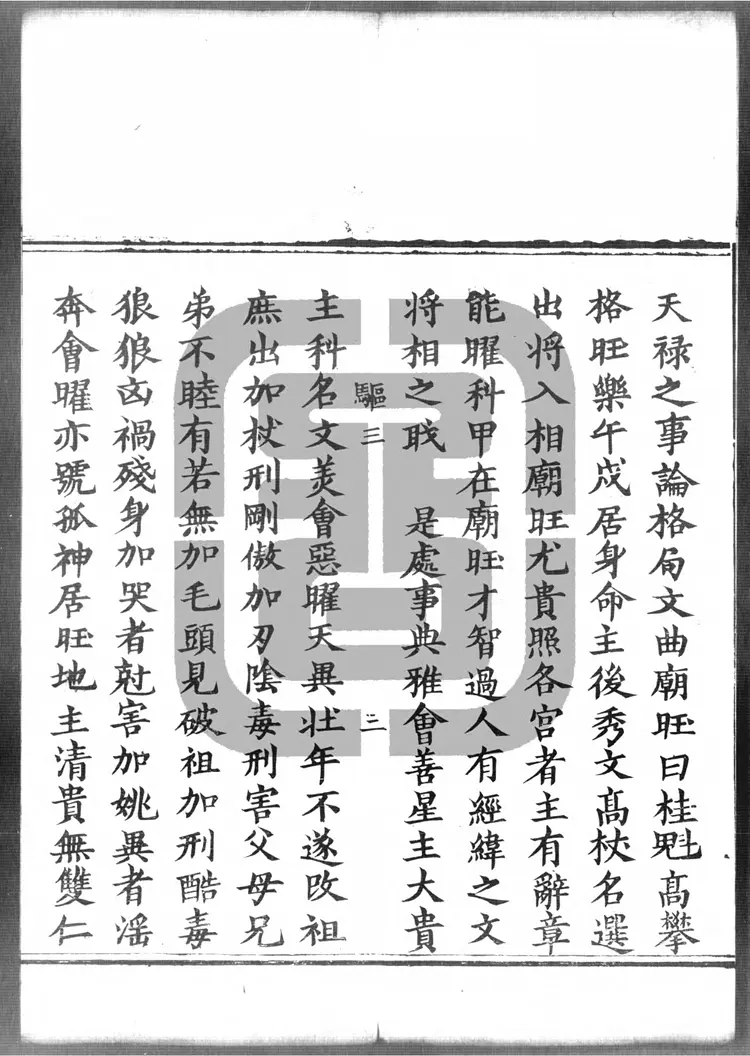 天禄之事論格局文曲廟旺曰桂魁高攀
格旺樂午戌居身命主後秀文高杖名選
出将入相廟旺尤貴照各宮者主有辭章
能曜科甲在廟旺才智過人有經緯之文
将相之職 是處事典雅會善星主大貴
驅三 三
主科名文美會惡曜天異壯年不遂改祖
庶出加杖刑剛傲加刃陰毒刑害父母兄
弟不睦有若無加毛頭見破祖加刑酷毒
狼狼凶禍殘身加哭者尅害加姚異者滛
奔會曜亦號孤神居旺地主清貴無雙仁